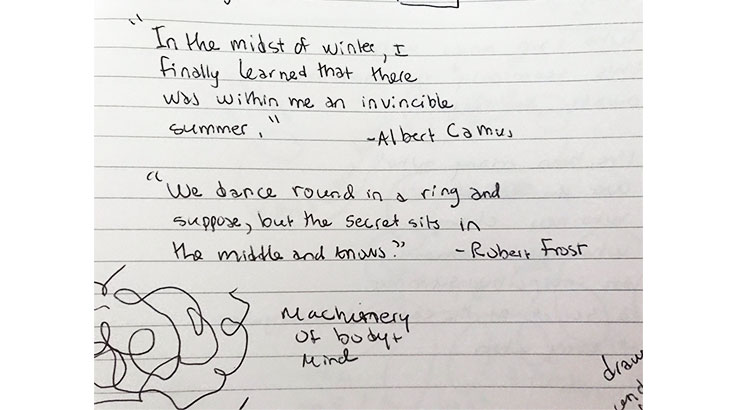 "In the midst of winter, I
finally learned that there
was within me an invincible
summer."
-Albert Camus
"We dance round in a ring and
suppose, but the secret sits in
the middle and knows."
-Robert Frost
Machinery
of body+
Mind
draw
end